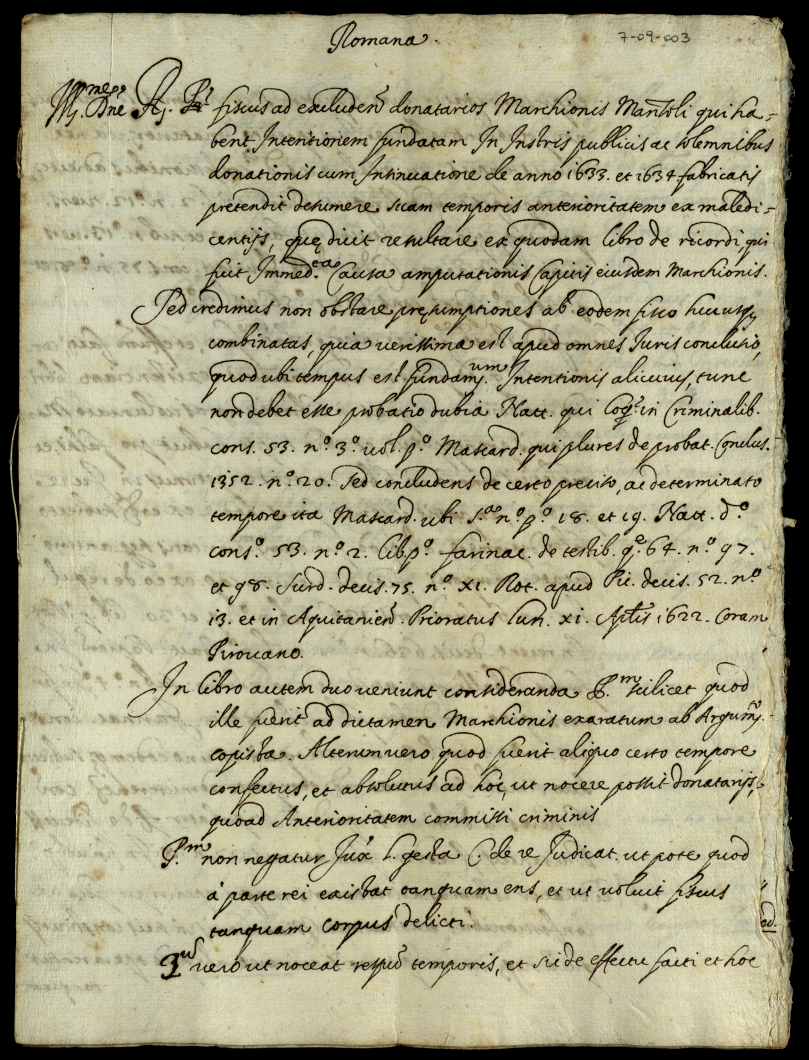 Romana.
7-09-003
Ill.me Dne R. Pr fiscus ad excludend donatarios Marchionis Mantoli qui ha=
bent Intentionem fundatam In Instris publicis ac solemnibus
donationis cum Intinuatione de anno 1633. et 1634 fabricatis
prętendit desumere suam temporis anterioritatem ex maledi=
centijs, quę dicit resultare ex quodam libro de ricordi, qui
fuit Immed.ta Causa amputationis Capitis eiusdem Marchionis.
Sed credimus non obstare pręsumptiones ab eodem fisco hucusq
combinatas, quia verissima est apud omnes Iuris conclusio,
quod ubi tempus est fundam.um Intentionis alicuius, tunc
non debet esse probatio dubia Natt. qui in Criminalib.
cons. 53. n.o 3.o vol. p.o Mascard. qui plures de probat. Conclus.
1352. n.o 20. Sed concludens de certo preciso, ac determinato
tempore ita Mascard. ubi s.a n.o p.o 18. et 19. Natt. d.o
cons.o 53. n.o 2. lib. p.o farinac. de testib. q.e 64. n.o 97.
et 98. Surd. decis. 75. n.o XI. Rot. apud Pic. decis. 52. n.o
13. et in Aquitanien Prioratus Lun. XI. Aplis 1622. Coram
Pirovano.
In libro autem duo veniunt consideranda P.m scilicet quod
ille fuerit ad dictamen Marchionis exaratum ab Argum.
copista. Alterum vero quod fuerit aliquo certo tempore
confectus, et absolutus ad hoc, ut nocere possit donatarijs,
quoad Anterioritatem commissi criminis
P.m non negatur Jux l. gesta C. de re Judicat. ut pote quod
à parte rei existat tanquam ens, et ut voluit fiscus
tanquam corpus delicti.
vero ut noceat respu temporis, et sic de effectu facti et hoc